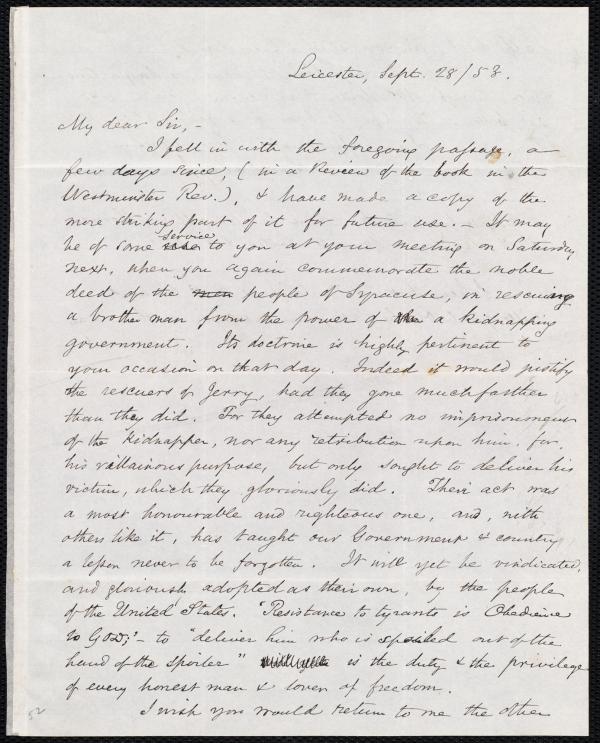 Leicester, Sept. 28/53.
My dear Sir,-
I fell in with the foregoing passage, a
few days since, (in a Review of the book in the
Westminster Rev.), & have made a copy of the
more striking part of it for future use. - It may
be of some use service to you at your meeting on Saturday
next, when you again commemorate the noble
deed of the men people of Syracuse, in rescuing
a brother man from the power of the a kidnapping
government. Its doctrine is highly pertinent to
your occasion on that day. Indeed it would justify
the rescuers of Jerry, had they gone much farther
than they did. For they attempted no imprisonment
of the kidnapper, nor any retribution upon him, for
his villainous purpose, but only sought to deliver his
victim, which they gloriously did. Their act was
a most honourable and righteous one, and, with
others like it, has taught our Government & country
a lesson never to be forgotten. It will yet be vindicated,
and gloriously adopted as their own, by the people
of the United States. "Resistance to tyrants is Obedience
to GOD;" - to "deliver him who is spoiled out of the
hand of the spoiler" is the duty & the privilege
of every honest man & lover of freedom.
I wish you would return to me the other
52